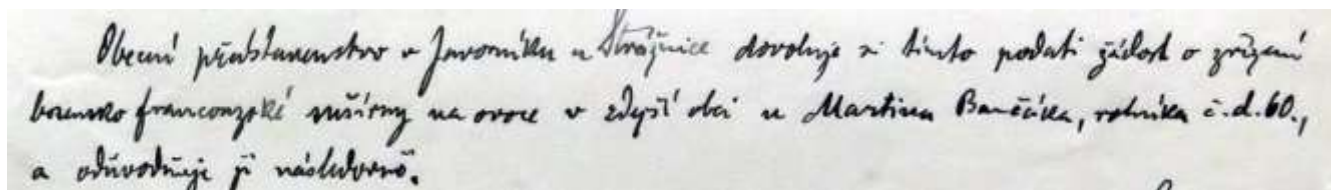 Obecní představenstvo v Javorníku u Strážnice dovoluje si tímto podati žádost o zřízení
bosensko francouzské sušírny na ovoce v zdejší obci u Martina Bančíka, rolníka č.d. 60.,
a odůvodňuje ji následovně.